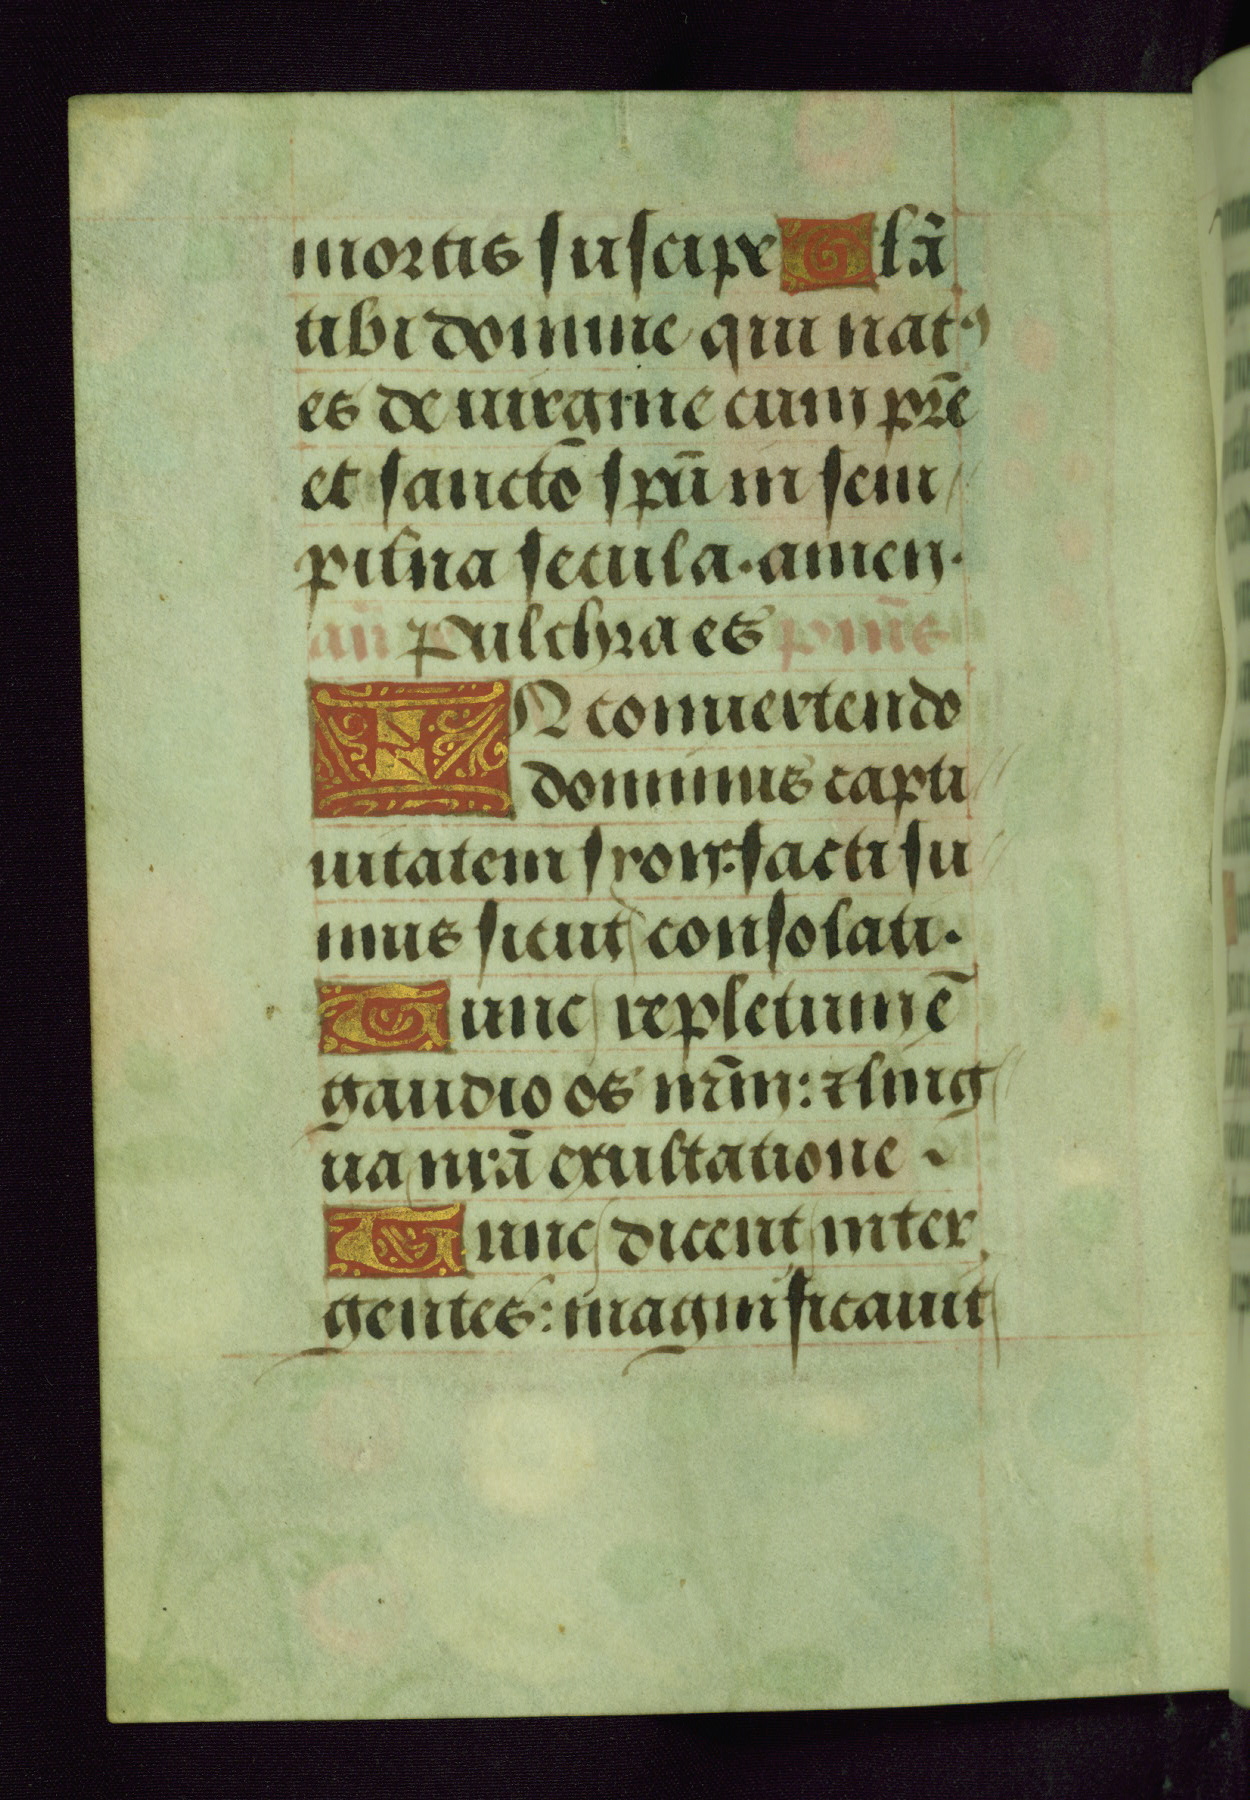 mortis suscipe Glã
tibi domine qui natꝰ
es de uirgine cum pr̃e
et sanctõ spũi in sem
pit̃na secula. amen.
añ Pulchra es ps̃
IN conuertendo
dominus capti
uitatem syon: facti su
mus sicut consolati.
Tunc repletum ẽ
gaudio os nr̃m: ⁊ ling
ua nr̃a exultatione
Tunc dicent inter
gentes: magnificauit